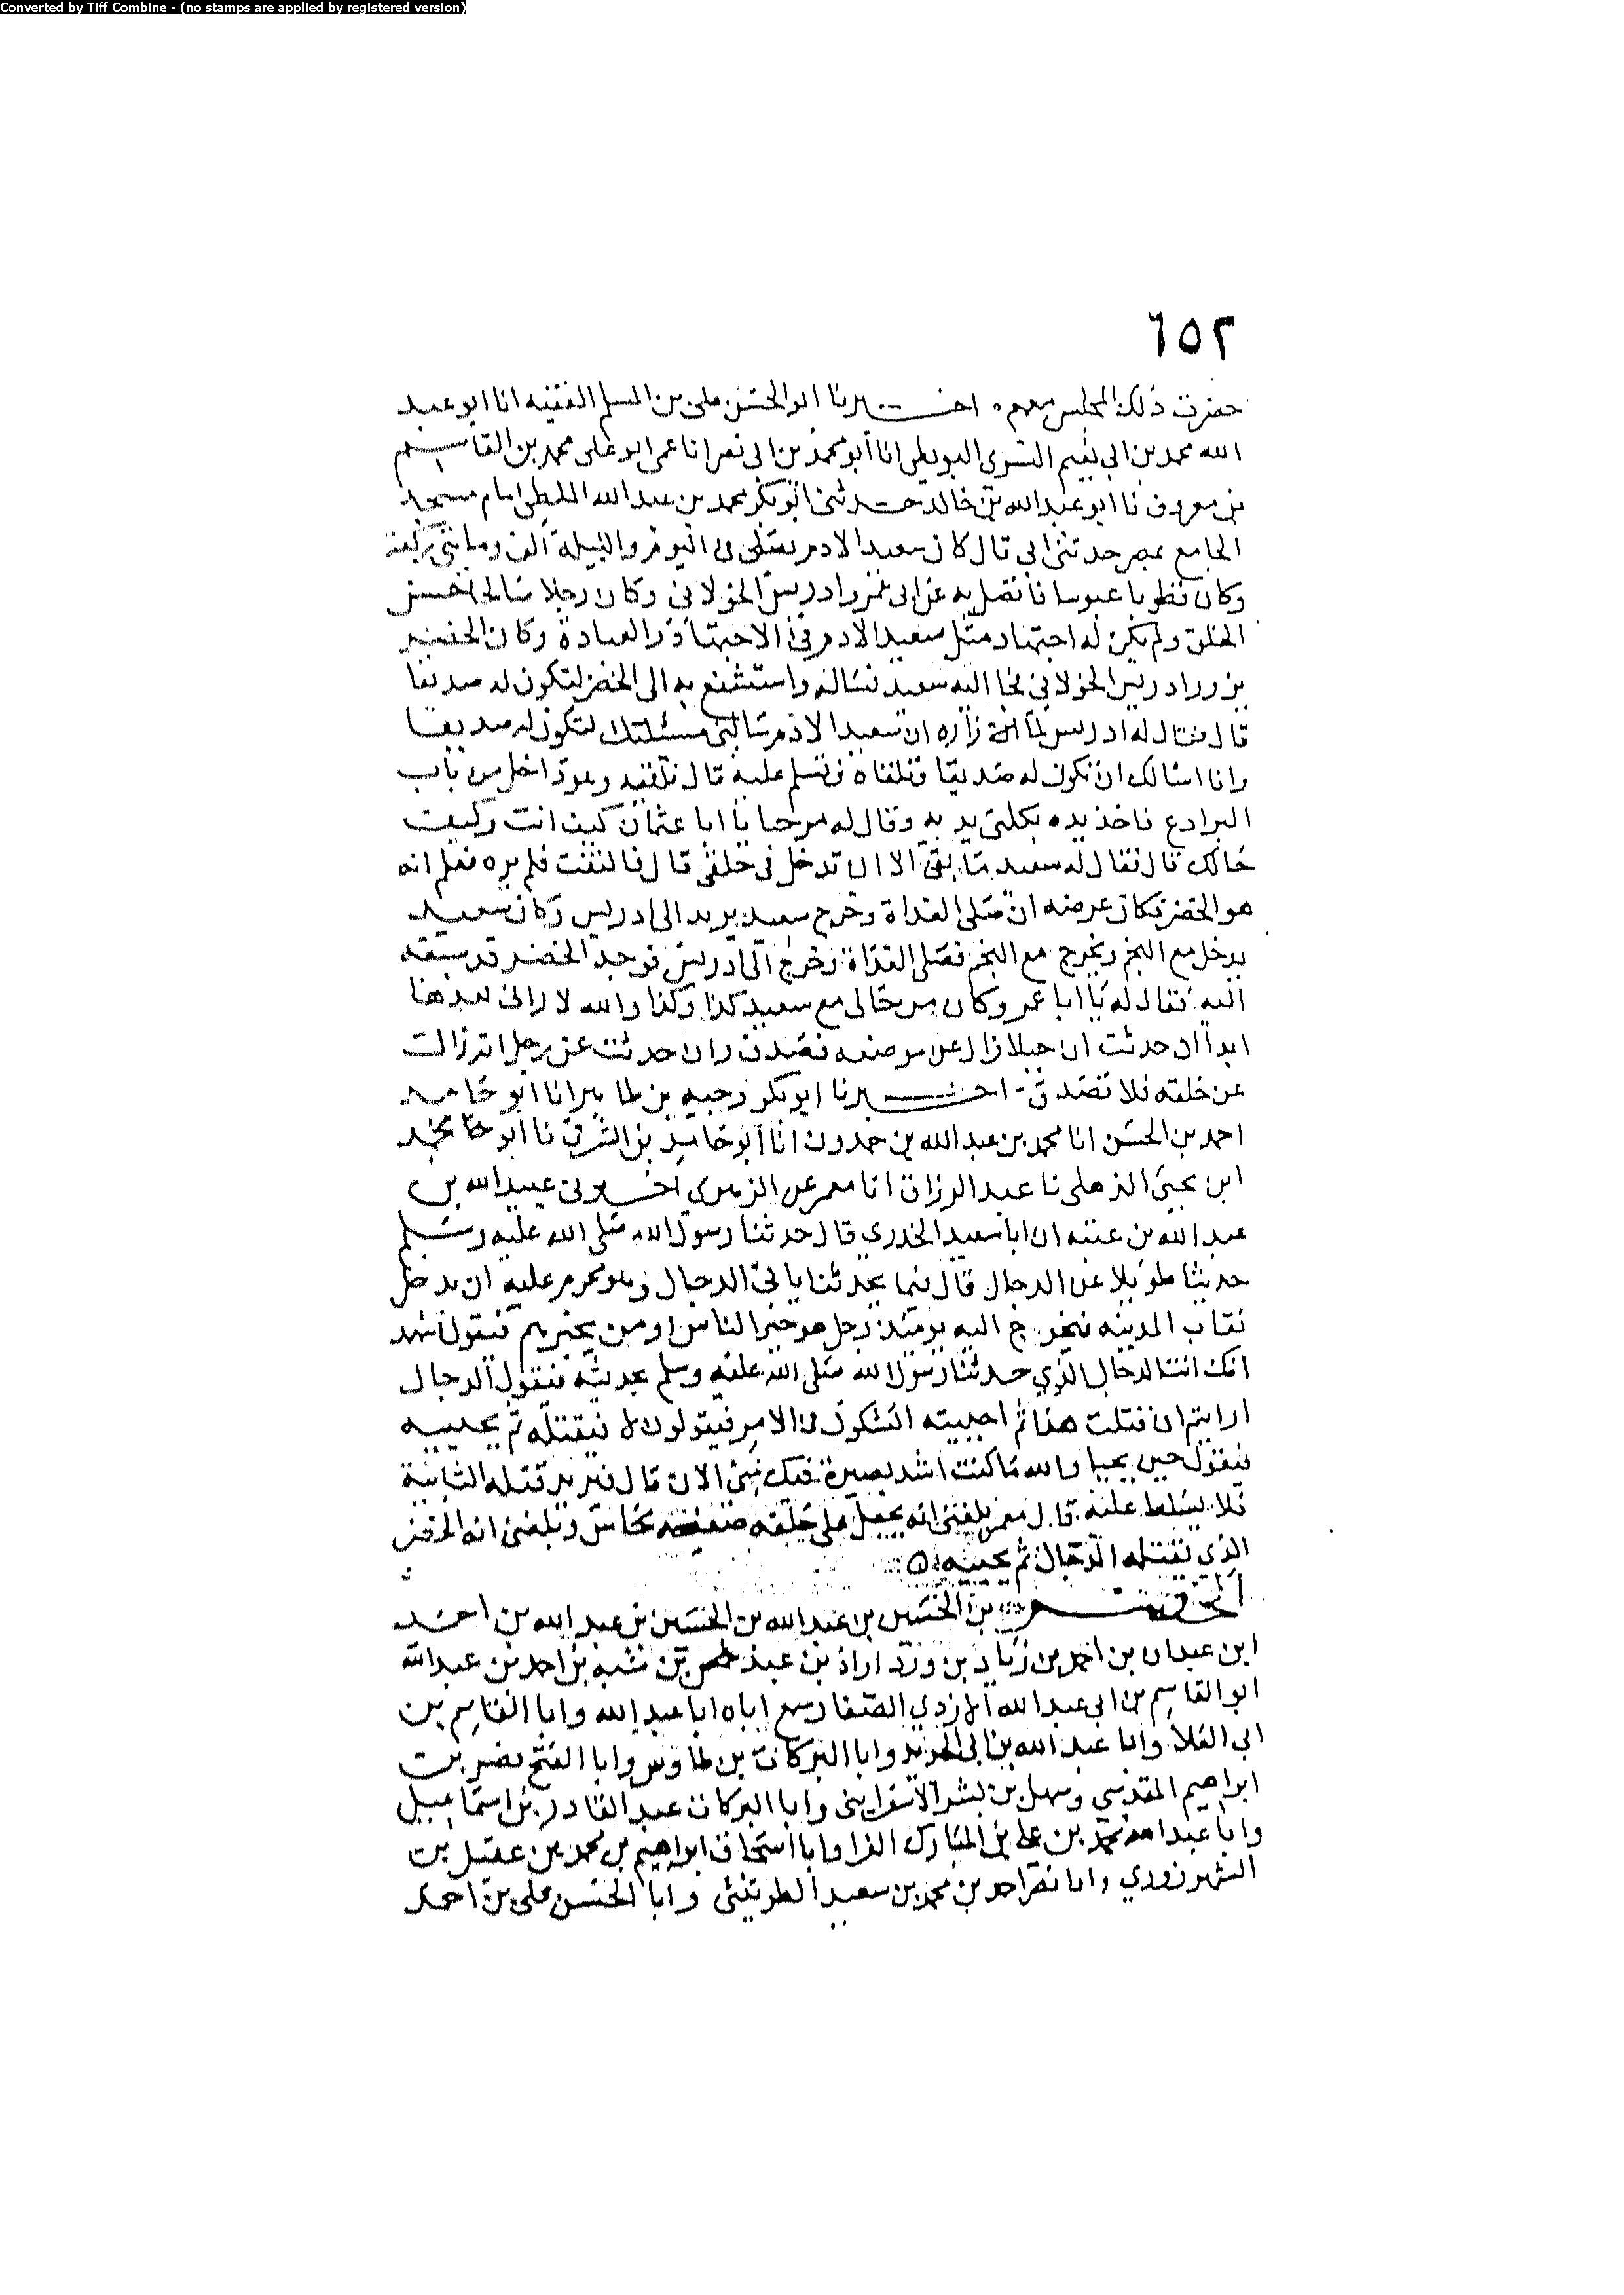 Converted by Tiff Combine - (no stamps are applied by registered version)
٦٥٢
حضرت ذلك المجلس معهم اخبرنا ابو الحسن على بن المسلم الفقيه انا ابو عبد
الله محمد بن ابي نعيم النسوي البويطى انا ابو محمد بن ابى نصر انا عمى ابو على محمد بن القاسم
بن معروف نا ابو عبد الله بن خالد حدثنى ابو بكر محمد بن عبد الله الملطى امام مسجد
الجامع بمصر حدثنى ابى قال كان سعيد الادم يصلى فى اليوم والليلة الف ومايتى ركعة
وكان قطوبا عبوسا فاتصل به عن ابى عمرو ادريس الخولانى وكان رجلا صالحا حسن
الخلق ولم يكن له اجتهاد مثل سعيد الادم فى الاجتهاد والعبادة وكان الخضر
يزور ادريس الخولانى فجا اليه سعيد فساله واستشفع به الى الخضر لتكون له صديقا
قال فقال له ادريس لما ان زاره ان سعيد الادم سالنى مسئلتك لتكون له صديقا
وانا اسالك ان تكون له صديقا فتلقاه فتسلم عليه قال فلقيه وهو داخل من باب
البرادع فاخذ يده بكلتى يديه وقال له مرحبا يا ابا عثمان كيف انت وكيف
حالك قال فقال له سعيد ما بقى الا ان تدخل فى حلقى قال فالتفت فلم يره فعلم انه
هو الخضر فكان غرضه ان صلى الغداة وخرج سعيد يريد الى ادريس وكان سعيد
يدخل مع النجم ويخرج مع النجم فصلى الغداة وخرج الى ادريس فوجد الخضر قد سبقه
اليه فقال له يا ابا عمرو كان من حالى مع سعيد كذا وكذا والله لا رانى بعدها
ابدا ان حدثت ان جبلا زال عن موضعه فصدق وان حدثت عن رجل انه زال
عن خلقه فلا تصدق اخبرنا ابو بكر وجيه بن طاهر انا ابو حامد
احمد بن الحسن انا محمد بن عبد الله بن حمدون انا ابو حامد بن الشرقى نا محمد
ابن يحيى الذهلى نا عبد الرزاق انا معمر عن الزهري اخبرنى عبيد الله بن
عبد الله بن عتبه ان ابا سعيد الخدري قال حدثنا رسول الله صلى الله عليه وسلم
حديثا طويلا عن الدجال قال فيما يحدثنا ياتى الدجال وهو محرم عليه ان يدخل
نقاب المدينه فيخرج اليه يومئذ رجل هو خير الناس او من خيرهم فيقول اشهد
انك انت الدجال الذي حدثنا رسول الله صلى الله عليه وسلم بحديثه فيقول الدجال
ارايتم ان قتلت هذا ثم احييته اتشكون فى الامر فيقولون لا فيقتله ثم يحييه
فيقول حين يحيا والله ما كنت اشد بصيرة فيك منى الان قال فيريد قتله الثانية
فلا يسلط عليه قال معمر بلغنى انه يجعل على حلقه صفيحة نحاس وبلغنى انه الخضر
الذي يقتله الدجال ثم يحييه
الخضر بن الحسين بن عبد الله بن الحسين بن عبد الله بن احمد
ابن عبدان بن احمد بن زياد بن ورد ازاد بن عبد بن شبه بن احمد بن عبد الله
ابو القاسم بن ابى عبد الله الازدي الصفار سمع اباه ابا عبد الله وابا القاسم بن
ابى العلا وابا عبد الله بن ابى الحديد وابا البركات بن طاوس وابا الفتح نصر بن
ابراهيم المقدسي وسهل بن بشر الاسفراينى وابا البركات عبد القادر بن اسماعيل
وابا عبد الله محمد بن على بن المبارك الفرا وابا اسحاق ابراهيم بن محمد بن عقيل بن
الشهرزوري وابا نصر احمد بن محمد بن سعيد الطريثيثى وابا الحسن على بن احمد